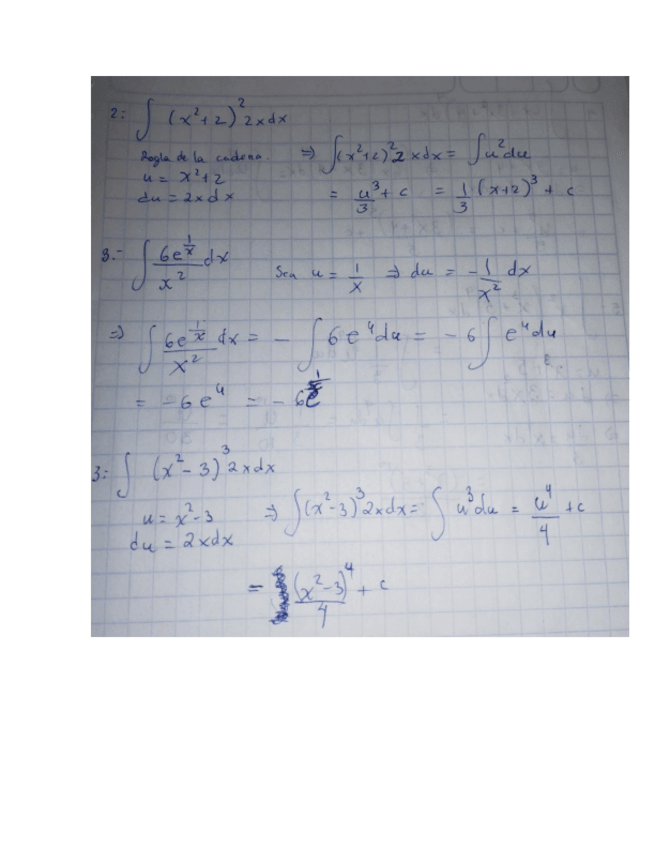 2: ∫ (x²+2)² 2xdx
Regla de la cadena. ⇒ ∫(x²+2)² 2xdx = ∫u²du
u = x²+2
du = 2xdx = u³/3 + c = 1/3 (x+2)³ + c
8.- ∫ 6e^(1/x)/x² dx Sea u = 1/x ⇒ du = -1/x² dx
⇒ ∫ 6e^(1/x)/x² dx = - ∫ 6e^u du = -6 ∫ e^u du
= -6e^u = -6e^(1/x)
3: ∫ (x²-3)³ 2xdx
u = x²-3 ⇒ ∫(x²-3)³ 2xdx = ∫ u³du = u⁴/4 + c
du = 2xdx
= (x²-3)⁴/4 + c